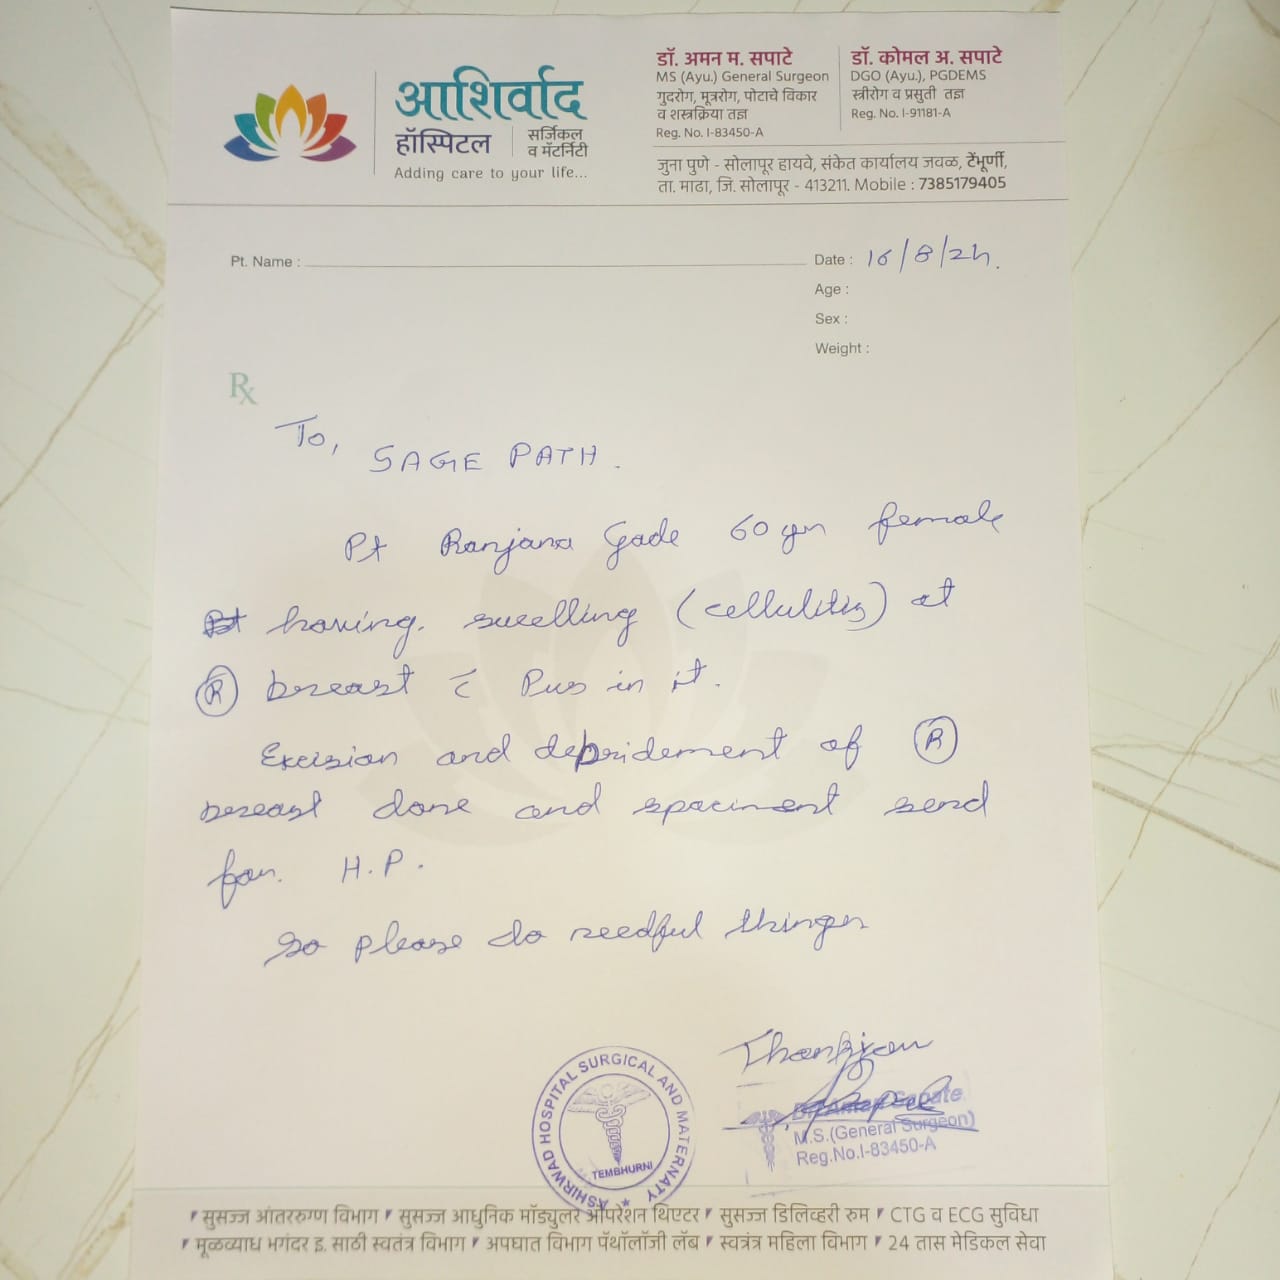 आशिर्वाद
हॉस्पिटल
सर्जिकल
व मॅटर्निटी
Adding care to your life...
डॉ. अमन म. सपाटे
MS (Ayu.) General Surgeon
गुदरोग, मूत्ररोग, पोटाचे विकार
व शस्त्रक्रिया तज्ञ
Reg. No. I-83450-A
डॉ. कोमल अ. सपाटे
DGO (Ayu.), PGDEMS
स्त्रीरोग व प्रसुती तज्ञ
Reg. No. I-91181-A
जुना पुणे - सोलापूर हायवे, संकेत कार्यालय जवळ, टेंभूर्णी,
ता. माढा, जि. सोलापूर - 413211. Mobile : 7385179405
Pt. Name :
Date : 16/8/24.
Age :
Sex :
Weight :
Rx
To,
SAGE PATH.
Pt Ranjana Gade 60 yr female
having. swelling (cellulitis) at
(R) breast c̄ Pus in it.
Excision and debridement of (R)
breast done and speciment send
for. H.P.
So please do needful things
Thankyou
Dr. Aman Sapate
M.S.(General Surgeon)
Reg.No.I-83450-A
ASHIRWAD HOSPITAL SURGICAL AND MATERNATY
TEMBHURNI
सुसज्ज आंतररुग्ण विभाग सुसज्ज आधुनिक मॉड्युलर ऑपरेशन थिएटर सुसज्ज डिलिव्हरी रुम CTG व ECG सुविधा
मूळव्याध भगंदर इ. साठी स्वतंत्र विभाग अपघात विभाग पॅथॉलॉजी लॅब स्वत्रंत्र महिला विभाग 24 तास मेडिकल सेवा